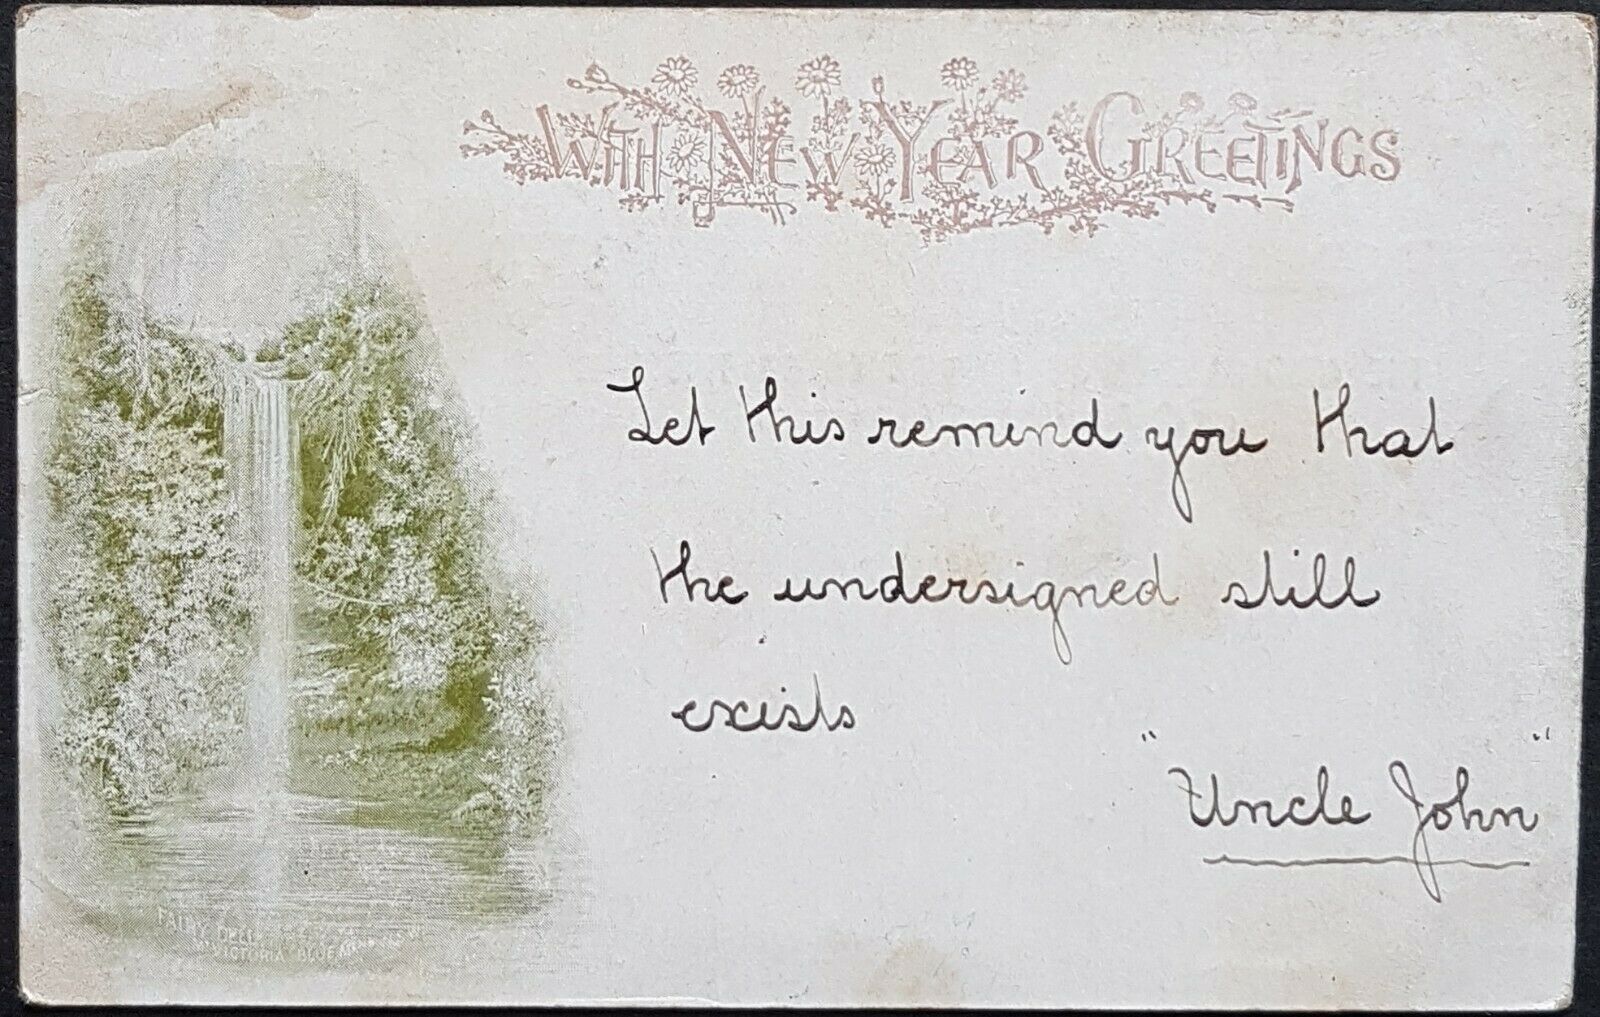 WITH NEW YEAR GREETINGS
Let this remind you that
the undersigned still
exists
"Uncle John"
FAIRY DELL
VICTORIA BLUE